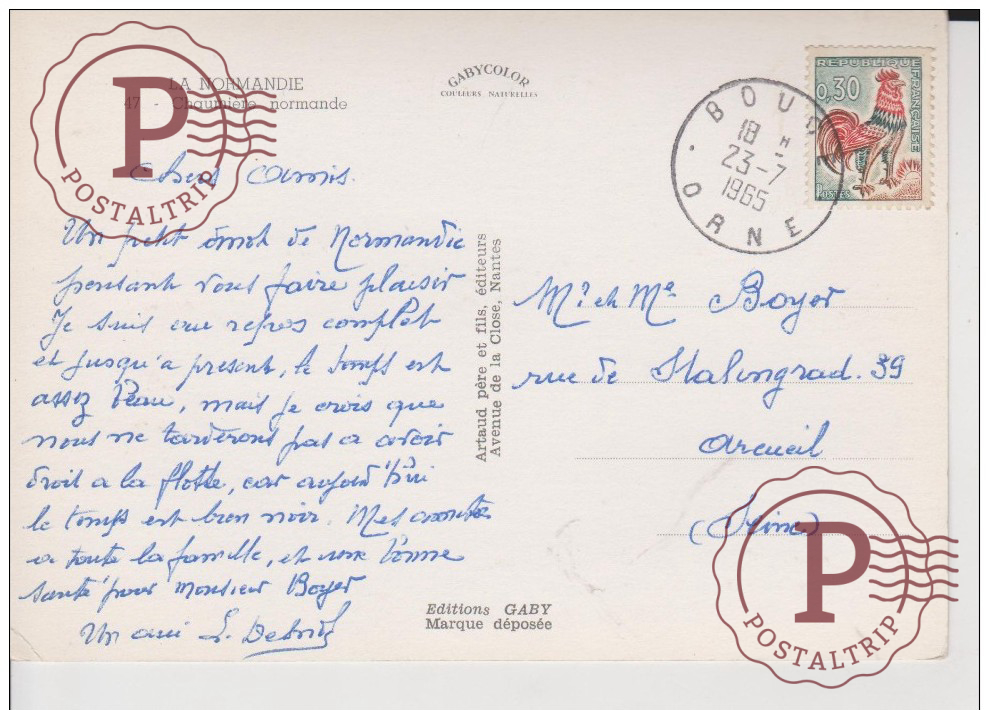 LA NORMANDIE
47 - Chaumière normande
GABYCOLOR
COULEURS NATURELLES
Chers amis.
Un petit de Normandie
pensant vous faire plaisir
Je suis au repos complet
et jusqu'a present, le temps est
assez beau, mais je crois que
nous ne tarderons pas a avoir
droit a la flotte, car aujourd'hui
le temps est bien noir. Mes
a toute la famille, et une bonne
santé pour Monsieur Boyer
Un ami
Artaud père et fils, éditeurs
Avenue de la Close, Nantes
Editions GABY
Marque déposée
REPUBLIQUE FRANÇAISE
0,30
POSTES
18 H
23-7
1965
ORNE
Mr et Me Boyer
rue de Stalingrad. 39
Arcueil
(Seine)
P
POSTALTRIP
P
POSTALTRIP